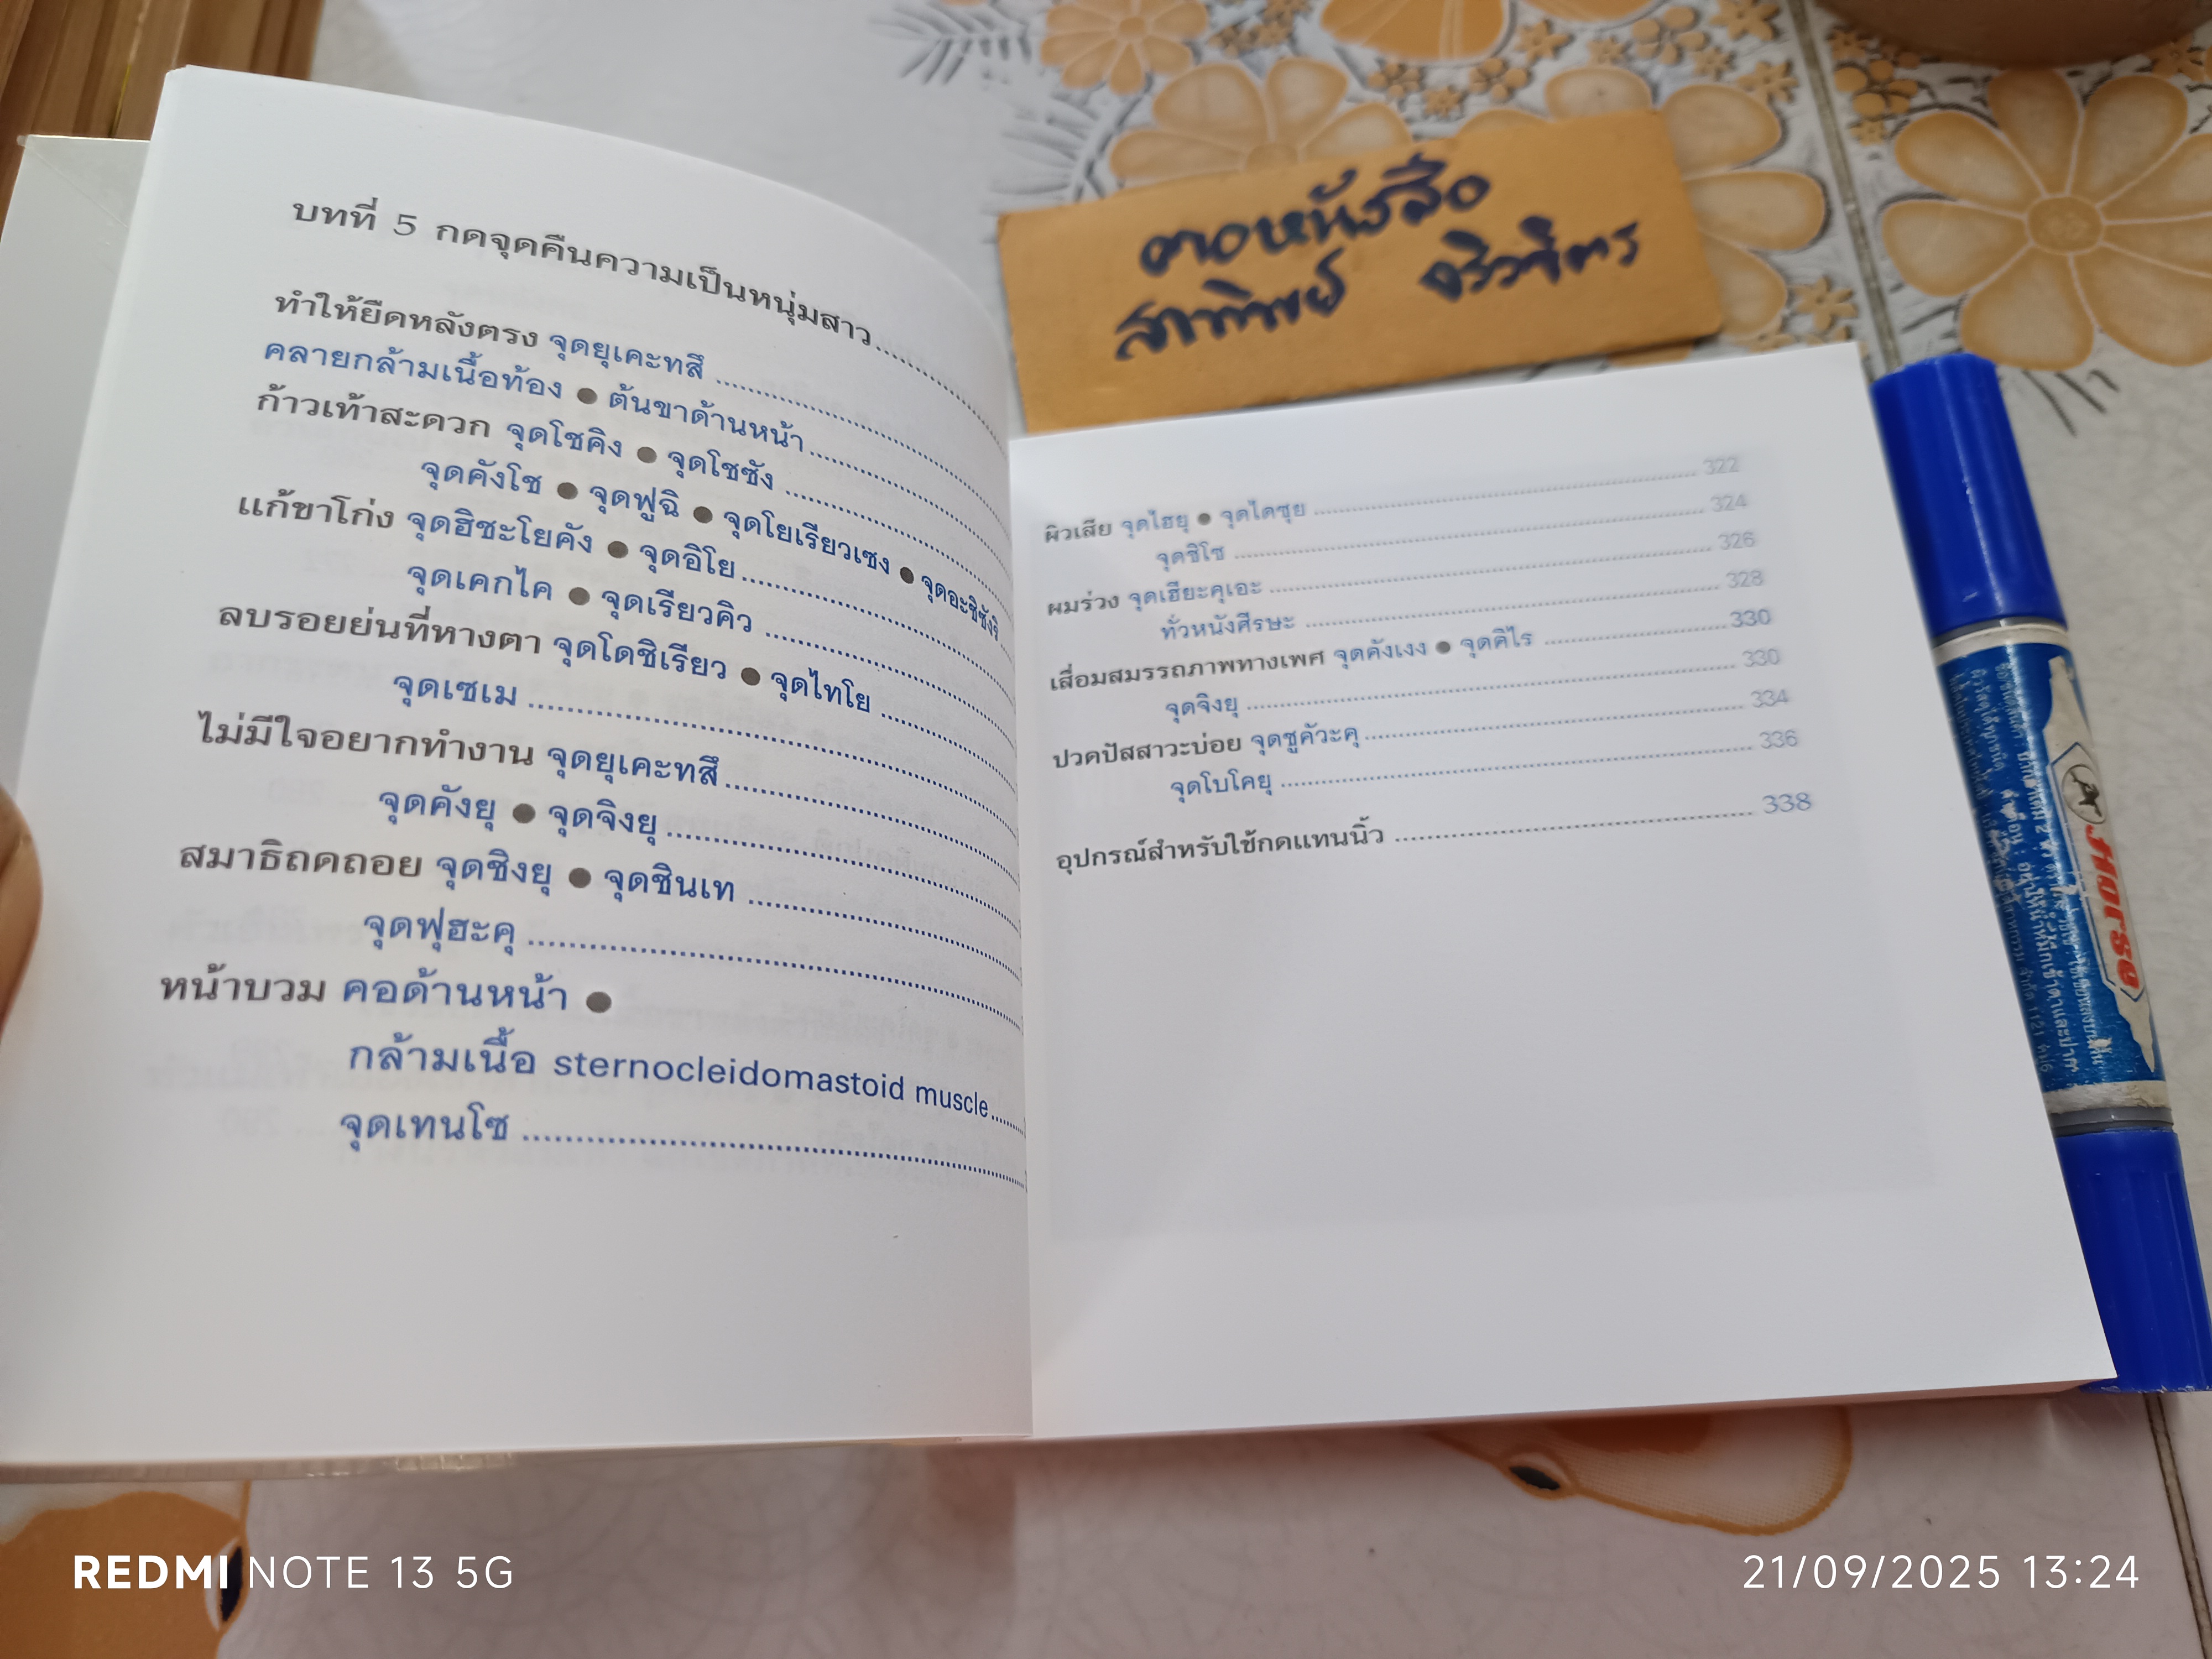 บทที่ 5 กดจุดคืนความเป็นหนุ่มสาว
ทำให้ยืดหลังตรง จุดยุเคะทสึ
คลายกล้ามเนื้อท้อง ● ต้นขาด้านหน้า
ก้าวเท้าสะดวก จุดโชคิง ● จุดโชซัง
จุดคังโช ● จุดฟูฉิ ● จุดโยเรียวเซง ● จุดอะชิซังริ
แก้ขาโก่ง จุดฮิชะโยคัง ● จุดอิโย
จุดเคกไค ● จุดเรียวคิว
ลบรอยย่นที่หางตา จุดโดชิเรียว ● จุดไทโย
จุดเซเม
ไม่มีใจอยากทำงาน จุดยุเคะทสึ
จุดคังยุ ● จุดจิงยุ
สมาธิถดถอย จุดชิงยุ ● จุดชินเท
จุดฟุฮะคุ
หน้าบวม คอด้านหน้า ●
กล้ามเนื้อ sternocleidomastoid muscle
จุดเทนโซ
ผิวเสีย จุดไฮยุ ● จุดไดซุย 322
จุดชิโซ 324
ผมร่วง จุดเฮียะคุเอะ 326
ทั่วหนังศีรษะ 328
เสื่อมสมรรถภาพทางเพศ จุดคังเงง ● จุดคิไร 330
จุดจิงยุ 330
ปวดปัสสาวะบ่อย จุดชูคัวะคุ 334
จุดโบโคยุ 336
อุปกรณ์สำหรับใช้กดแทนนิ้ว 338
ตอหนังสือ
สาทิพย์ จริวจิตร
Horse
REDMI NOTE 13 5G
21/09/2025 13:24